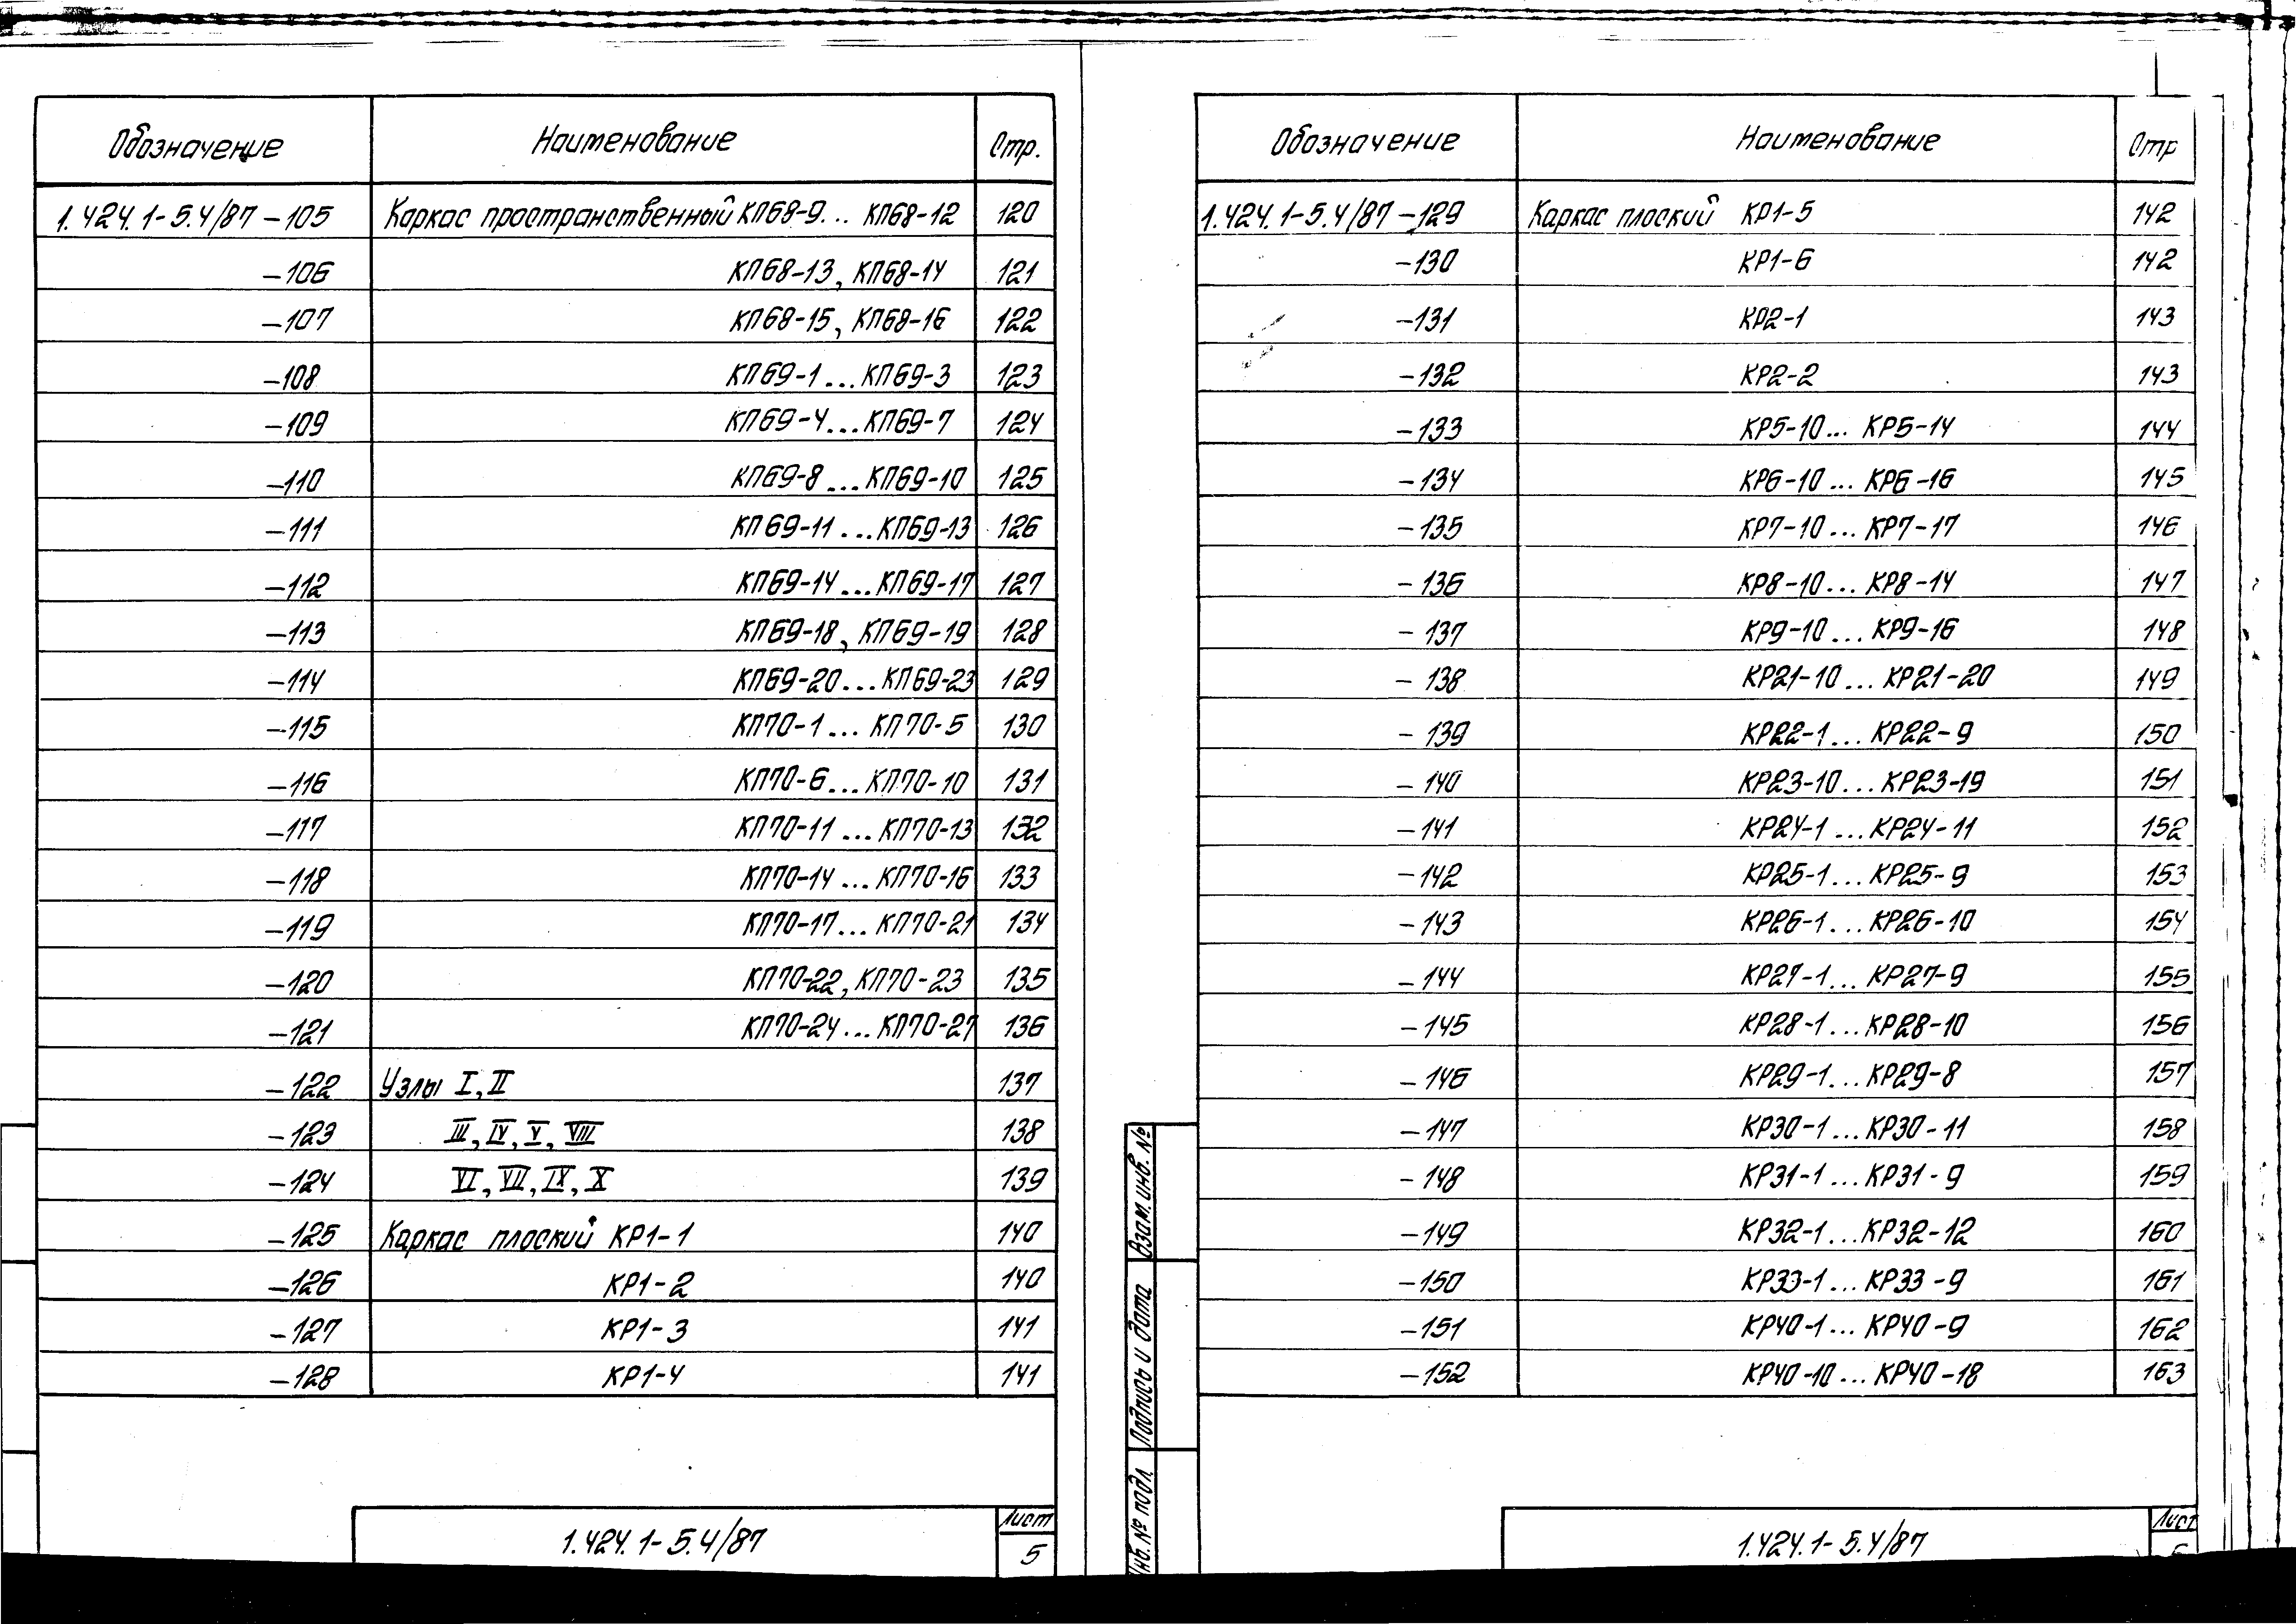 Обозначение Наименование Стр.
1.424.1-5.4/87 -105 Каркас пространственный КП68-9... КП68-12 120
-106 КП68-13, КП68-14 121
-107 КП68-15, КП68-16 122
-108 КП69-1...КП69-3 123
-109 КП69-4...КП69-7 124
-110 КП69-8...КП69-10 125
-111 КП69-11...КП69-13 126
-112 КП69-14...КП69-17 127
-113 КП69-18, КП69-19 128
-114 КП69-20...КП69-23 129
-115 КП70-1...КП70-5 130
-116 КП70-6...КП70-10 131
-117 КП70-11...КП70-13 132
-118 КП70-14...КП70-16 133
-119 КП70-17...КП70-21 134
-120 КП70-22, КП70-23 135
-121 КП70-24...КП70-27 136
-122 Узлы I, II 137
-123 III, IV, V, VIII 138
-124 VI, VII, IX, X 139
-125 Каркас плоский КР1-1 140
-126 КР1-2 140
-127 КР1-3 141
-128 КР1-4 141
1.424.1-5.4/87
Лист
5
Обозначение Наименование Стр
1.424.1-5.4/87 -129 Каркас плоский КР1-5 142
-130 КР1-6 142
-131 КР2-1 143
-132 КР2-2 143
-133 КР5-10... КР5-14 144
-134 КР6-10... КР6-16 145
-135 КР7-10... КР7-17 146
-136 КР8-10... КР8-14 147
-137 КР9-10... КР9-16 148
-138 КР21-10... КР21-20 149
-139 КР22-1... КР22-9 150
-140 КР23-10... КР23-19 151
-141 КР24-1... КР24-11 152
-142 КР25-1... КР25-9 153
-143 КР26-1... КР26-10 154
-144 КР27-1... КР27-9 155
-145 КР28-1... КР28-10 156
-146 КР29-1... КР29-8 157
-147 КР30-1... КР30-11 158
-148 КР31-1... КР31-9 159
-149 КР32-1... КР32-12 160
-150 КР33-1... КР33-9 161
-151 КР40-1... КР40-9 162
-152 КР40-10... КР40-18 163
Взам. инв. №
Подпись и дата
Инв. № подл.
1.424.1-5.4/87
Лист